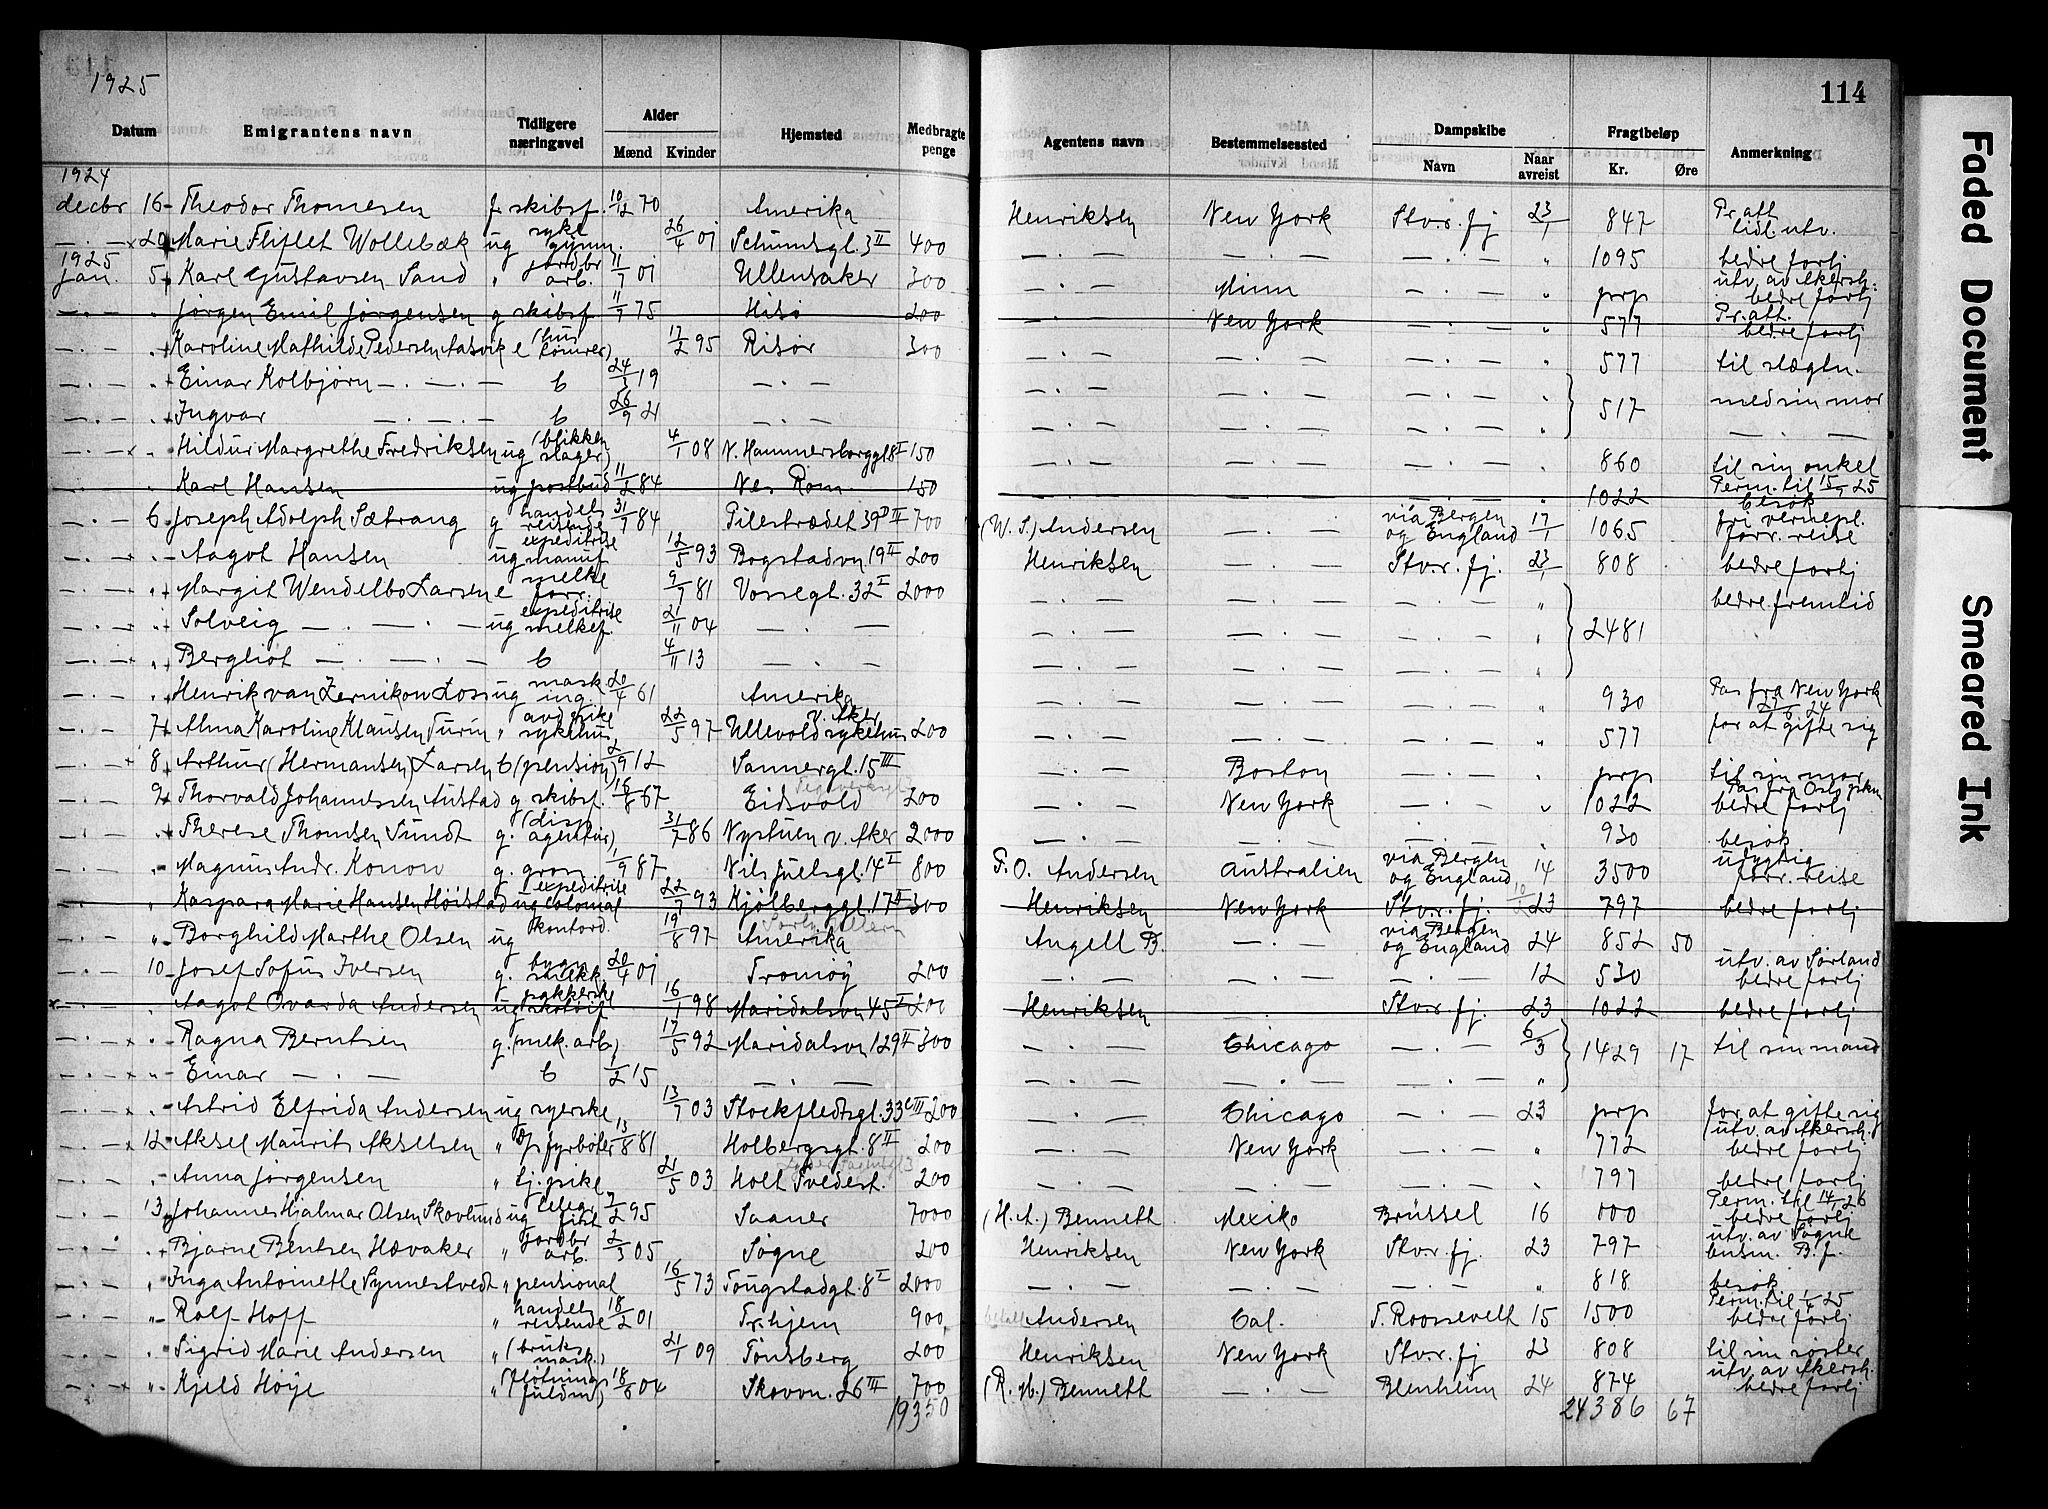 1925
114
Datum | Emigrantens navn | Tidligere næringsvei | Alder Mænd Kvinder | Hjemsted | Medbragte penge | Agentens navn | Bestemmelsessted | Dampskibe Navn Naar avreist | Fragtbeløp Kr. Øre | Anmerkning
1924
decbr 16 Theodor Thomesen f. skibsf. 10/12 70 Amerika Henriksen New York Stvr. fj 23/1 847 Pr. att. tidl. utv.
— . — 20 Marie Fliflet Wollebæk ug syke gymn. 26/4 01 Schundsgt. 3 II 400 — . — — . — — . — " 1095 bedre forlj
1925
Jan. 5 Karl Gustavsen Sand " jordbr arb. 11/7 01 Ullensaker 300 — . — Minn — . — " prp utv. av Akersh. bedre forlj
— . — " Jørgen Emil Jørgensen g skibsf 11/7 75 Hisø 200 — . — New York — . — " 577 Pr. att. bedre forlj
— . — " Karoline Mathilde Pedersen Aasvik e (hus tømrer) 17/2 95 Risør 300 — . — — . — — . — " 577 til slægtn.
— . — " Einar Kolbjørn — . — . — b 24/3 19 — . — — . — — . — — . — " 517 med sin mor
— . — " Ingvar — . — . — b 26/9 21 — . — — . — — . — — . — " — . —
— . — " Hildur Margrethe Fredriksen ug (blikken slager) 4/1 08 N. Hammersborggt 8 I 150 — . — — . — — . — " 860 til sin onkel
— . — " Karl Hansen ug postbud 11/2 84 Nes Rom. 150 — . — — . — — . — " 1022 Perm. til 15/9 25 besøk
— . — 6 Joseph Adolph Sætrang g handels reisende 31/7 84 Pilestrædet 39 D II 700 (W. S.) Andersen — . — via Bergen og England 17/1 1065 fri vernepl. forr. reise
— . — " Aagot Hansen ug expeditrise manuf. 12/5 93 Bogstadvn. 19 II 200 Henriksen — . — Stvr. fj. 23/1 808 bedre forlj
— . — " Margit Wendelbo Larsen e melke forr. 9/7 81 Vossegt. 32 I 2000 — . — — . — — . — " 2481 bedre fremtid
— . — " Solveig — . — . — ug expeditrise melkef. 21/11 04 — . — — . — — . — — . — "
— . — " Bergliot — . — . — b 4/11 13 — . — — . — — . — — . — "
— . — " Henrik van Zernikow Loss ug mask ing. 20/4 61 Amerika — . — — . — — . — " 930 Pas fra New York 29/8 24
— . — 7 Alma Karoline Klausen Turin " avd. pike sykehus 22/5 97 Ullevold sykehus v. Aker 200 — . — — . — — . — " 577 for at gifte sig
— . — 8 Arthur (Hermansen) Larsen b (pension) 2/9 12 Sannergt. 15 III — . — Boston — . — " prp til sin mor
— . — 9 Thorvald Johannessen Austad g skibsf. 16/8 67 Eidsvold 200 — . — New York — . — " 1022 Pas fra Oslo bedre forlj
— . — " Therese Thomsen Sundt g. (disp agentur) 31/7 86 Nystuen v. Aker 2000 — . — — . — — . — " 930 besøk
— . — " Magnus Andr. Konow g. gross 1/9 87 Nils Juelsgt. 14 I 800 F. O. Andersen Australien via Bergen og England 14 3500 utvytig forr. reise
— . — " Kaspara Marie Hansen Høistad ug expeditrise colonial 22/7 93 Kjølberggt. 17 II 300 Henriksen New York Stvr. fj. 10/2 23 797 bedre forlj
— . — " Borghild Marthe Olsen ug kontord. 19/8 97 Amerika Angell B. — . — via Bergen og England 24 852 50
— . — 10 Josef Sofus Iversen g. bygn. snekk 20/4 01 Tromøy 200 — . — — . — — . — 12 530 utv. av Sørland bedre forlj
— . — " Aagot Ovarda Andersen ug pakkerske skotøif 16/1 98 Maridalsvn 45 I 200 Henriksen — . — Stvr. fj. 23 1022 bedre forlj
— . — " Ragna Berntsen g. (mek. arb) 17/5 92 Maridalsvn 129 II 300 — . — Chicago — . — 6/3 1429 17 til sin mand
— . — " Einar — . — b 1/2 15 — . — — . — — . — — . — "
— . — " Astrid Elfrida Andersen ug syerske 13/7 03 Stockfledtsgt. 33 c III 200 — . — Chicago — . — 23 prp for at gifte sig
— . — 12 Aksel Maurits Akselsen " fyrbøter 13/8 81 Holbergsgt. 8 II 200 — . — New York — . — " 772 utv. av Akersh. bedre forlj
— . — " Anna Jørgensen " tj. pike 21/5 03 Holt Tvedest. 200 — . — — . — — . — " 797 bedre forlj
— . — 13 Johannes Hjalmar Olsen Skovlund ug telegr. fist 7/2 95 Saaner 7000 (H. A.) Bennett Mexiko Brüssel 16 1100 Perm. til 14/1 26 bedre forlj
— . — " Bjarne Bentsen Hævaker " jordbr arb. 2/3 05 Søgne 200 Henriksen New York Stvr. fj. 23 797 utv. av Søgne lensm. B. f.
— . — " Inga Antoinette Synnestvedt " pensional 16/5 73 Tougstadgt. 8 I 2000 — . — — . — — . — " 818 besøk
— . — " Rolf Hoff " handels reisende 18/2 01 Tr.hjem 900 Andersen Cal. T. Roossevelt 15 1500 Perm. til 1/4 25 bedre forlj
— . — " Sigrid Marie Andersen " (bruks mask.) 21/1 09 Tønsberg 200 Henriksen New York Stvr. fj 23 808 til sin søster
— . — " Kjeld Høye " (fløtning fuldm) 18/8 04 Skovvn. 26 III 700 (R. M.) Bennett — . — Blenheim 24 874 utv. av Akersh. bedre forlj
19350 24386 67
Faded Document
Smeared Ink